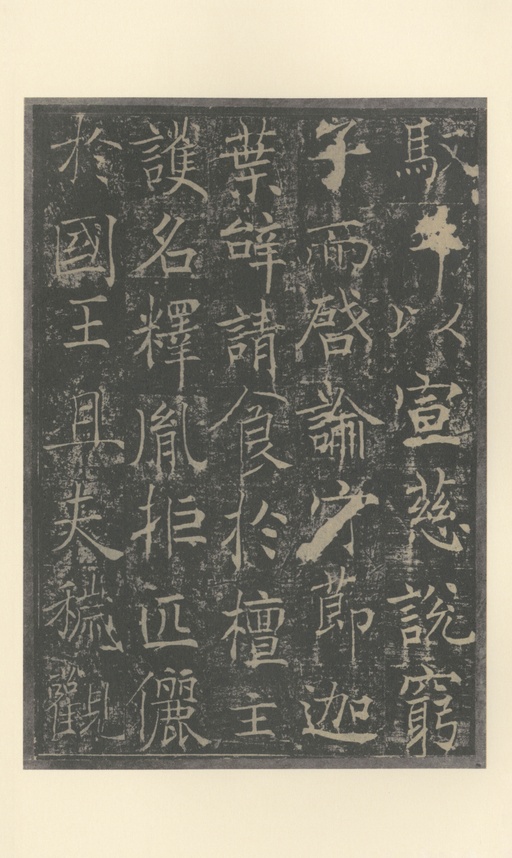 馭牛以宣慈說窮
子而啓論守節迦
葉辭請食於檀主
護名釋胤拒匹儷
於國王且夫穢觀